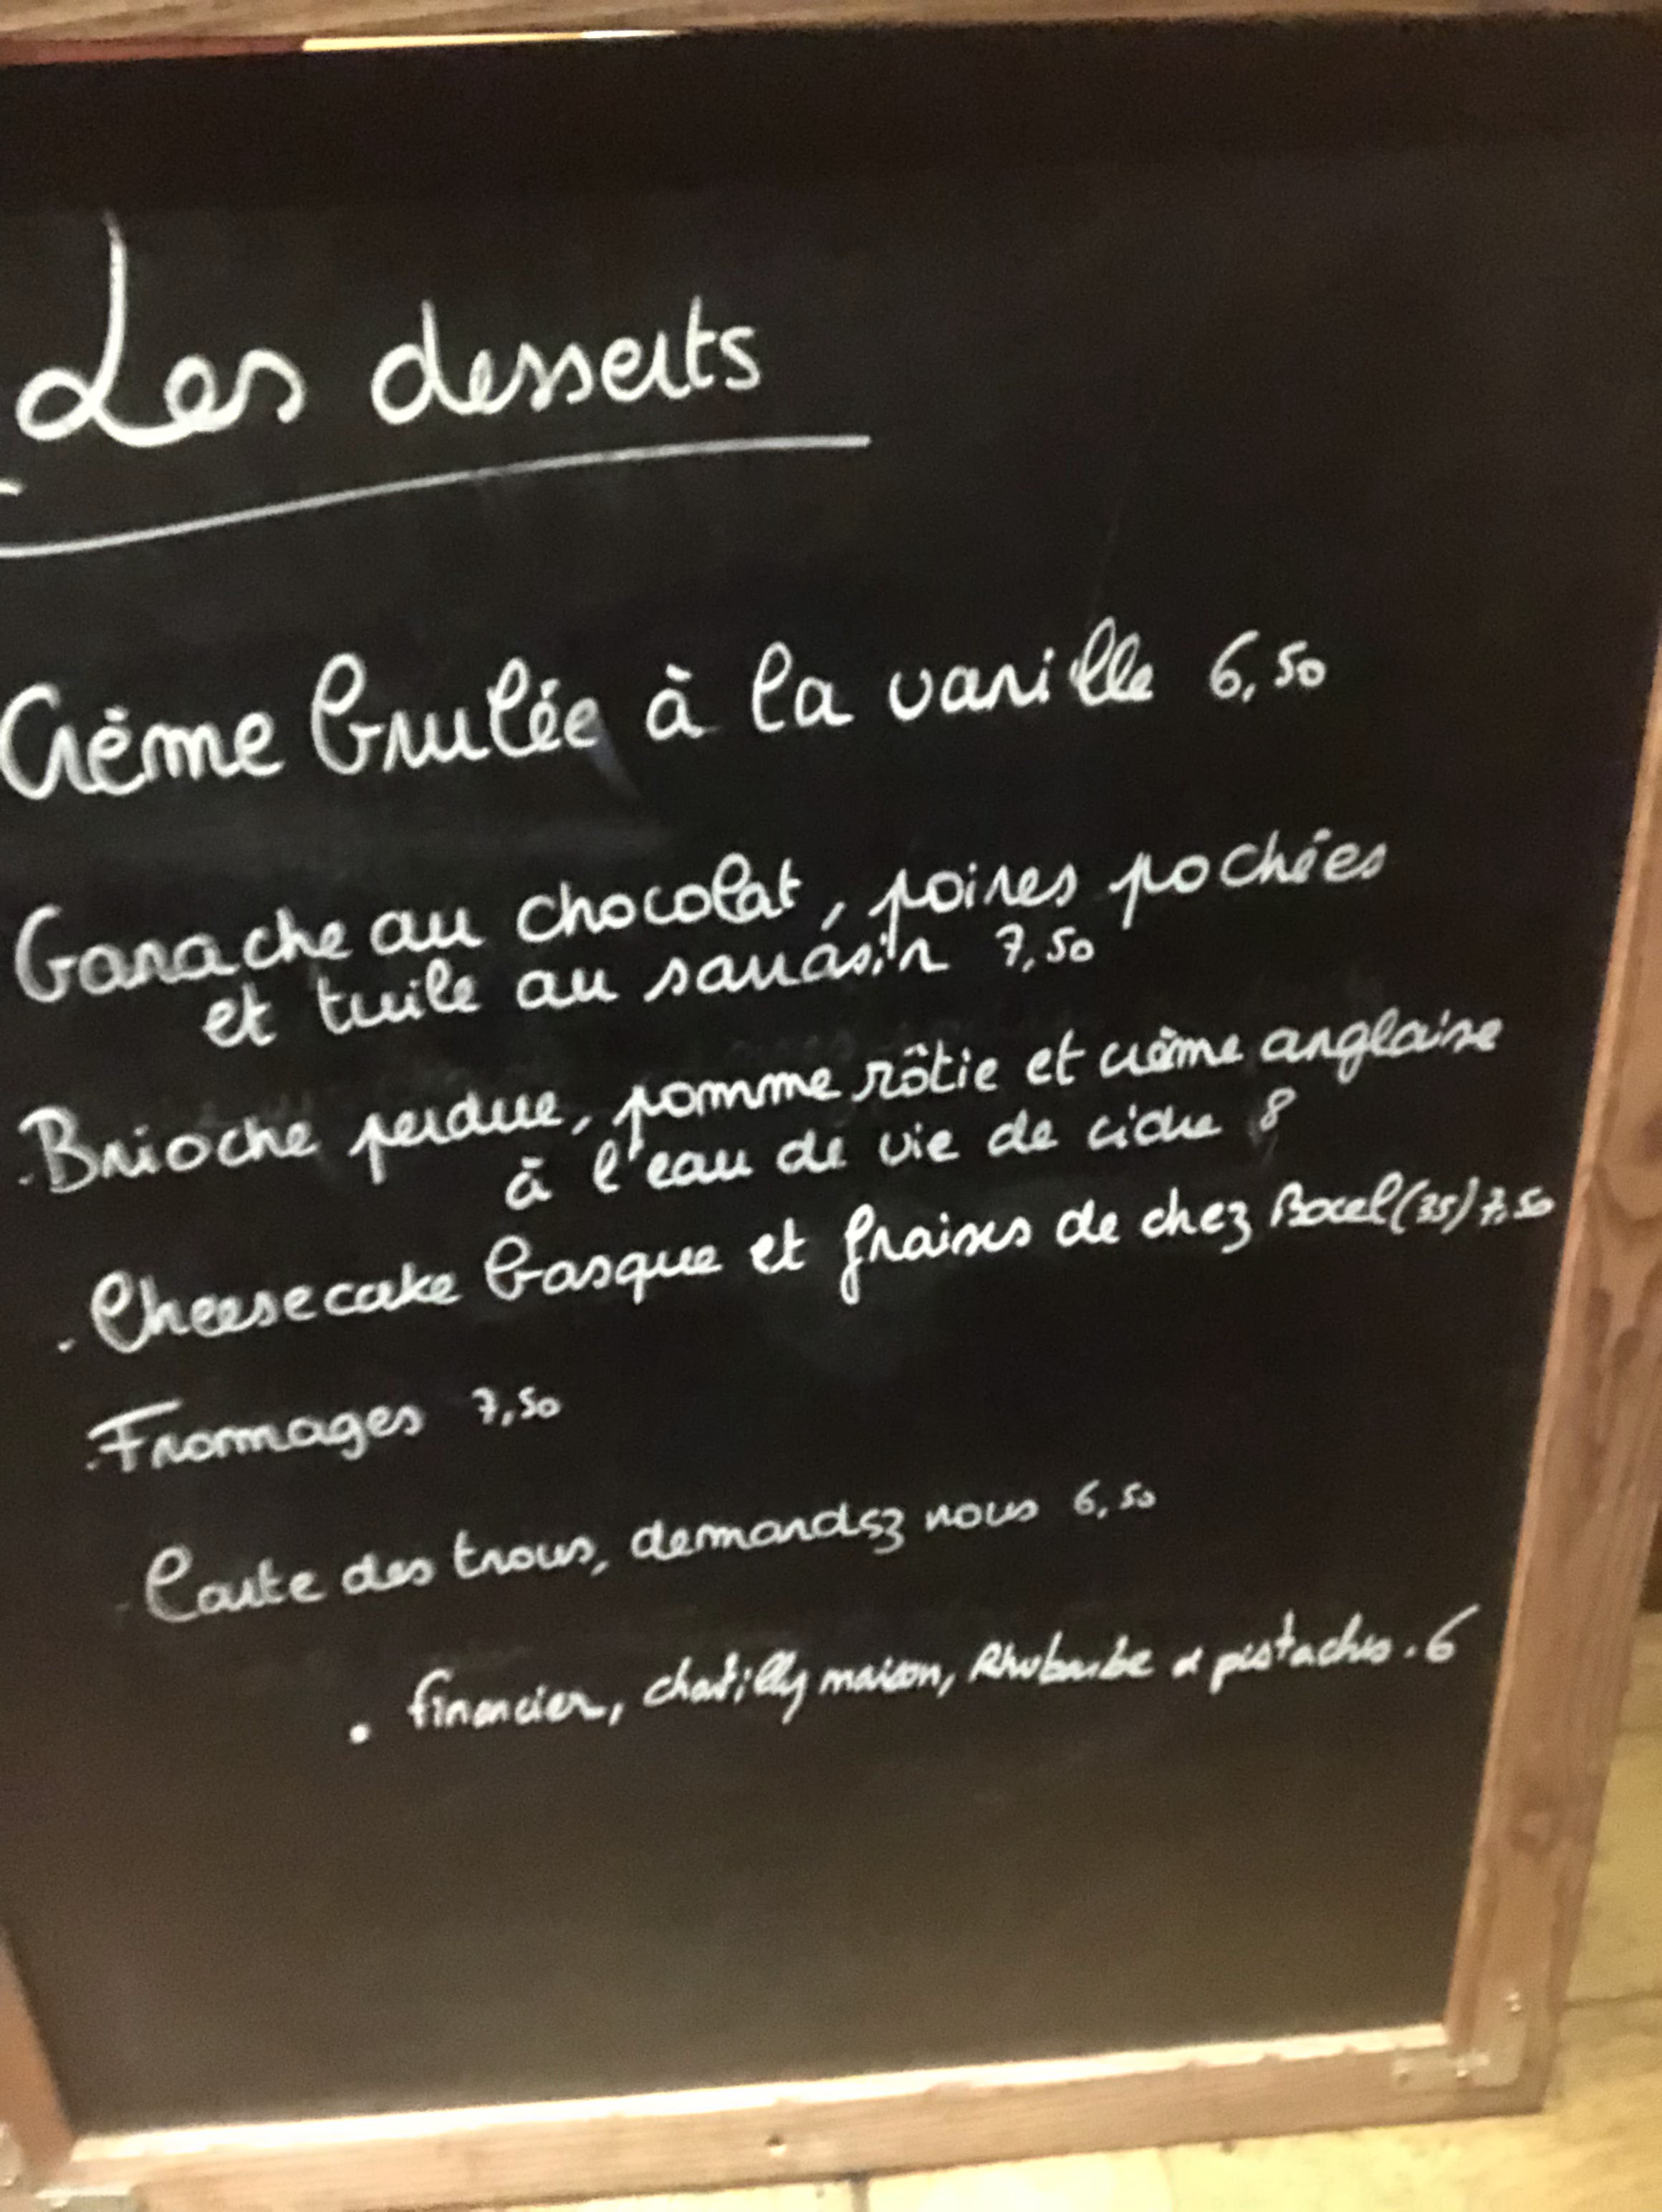 Les desserts
Crème brulée à la vanille 6,50
Ganache au chocolat, poires pochées
et tuile au sarrasin 7,50
. Brioche perdue, pomme rôtie et crème anglaise
à l'eau de vie de cidre 8
. Cheesecake basque et fraises de chez Bocel (35) 7,50
. Fromages 7,50
. Carte des trous, demandez nous 6,50
. financier, chantilly maison, Rhubarbe & pistaches . 6